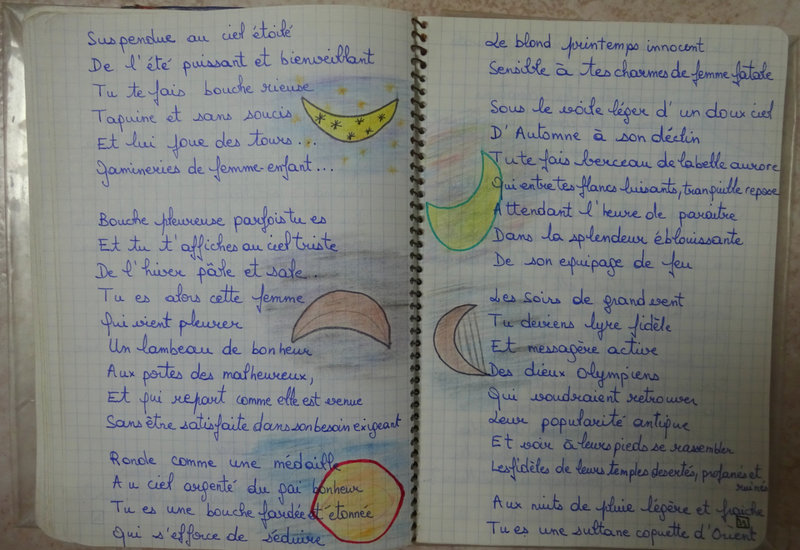 Suspendue au ciel étoilé
De l'été puissant et bienveillant
Tu te fais bouche rieuse
Taquine et sans soucis
Et lui joue des tours...
Gamineries de femme-enfant...
Bouche pleureuse parfois tu es
Et tu t'affiches au ciel triste
De l'hiver pâle et sale...
Tu es alors cette femme
Qui vient pleurer
Un lambeau de bonheur
Aux portes des malheureux,
Et qui repart comme elle est venue
Sans être satisfaite dans son besoin exigeant
Ronde comme une médaille
Au ciel argenté du gai bonheur
Tu es une bouche fardée et étonnée
Qui s'efforce de séduire
Le blond printemps innocent
Sensible à tes charmes de femme fatale
Sous le voile léger d'un doux ciel
D'Automne à son déclin
Tu te fais berceau de la belle aurore
Qui entre tes flancs luisants, tranquille repose
Attendant l'heure de paraître
Dans la splendeur éblouissante
De son equipage de feu
Les soirs de grand vent
Tu deviens lyre fidèle
Et messagère active
Des dieux Olympiens
Qui voudraient retrouver
Leur popularité antique
Et voir à leurs pieds se rassembler
Les fidèles de leurs temples desertés, profanés et
ruinés
Aux nuits de pluie légère et fraîche
Tu es une sultane coquette d'Orient